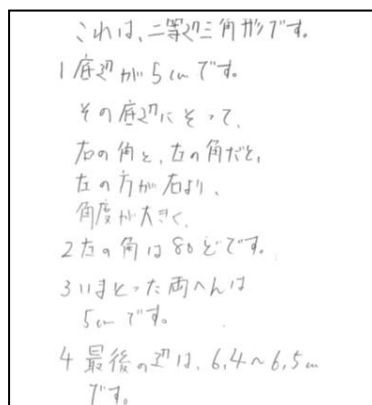 これは、二等辺三角形です。
1 底辺が5cmです。
その底辺にそって、
右の角と、左の角だと、
左の方が右より、
角度が大きく、
2 左の角は80どです。
3 いまとった両へんは
5cmです。
4 最後の辺は、6,4〜6,5cm
です。